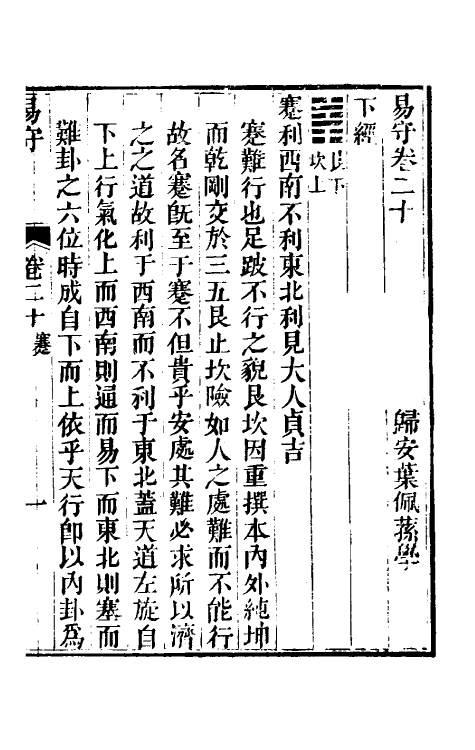 易守卷二十
歸安葉佩蓀學
下經
艮下
坎上
蹇利西南不利東北利見大人貞吉
蹇難行也足跛不行之貌艮坎因重撰本內外純坤
而乾剛交於三五艮止坎險如人之處難而不能行
故名蹇旣至于蹇不但貴乎安處其難必求所以濟
之之道故利于西南而不利于東北蓋天道左旋自
下上行氣化上而西南則通而易下而東北則塞而
難卦之六位時成自下而上依乎天行卽以內卦爲
易守
卷二十
蹇
一